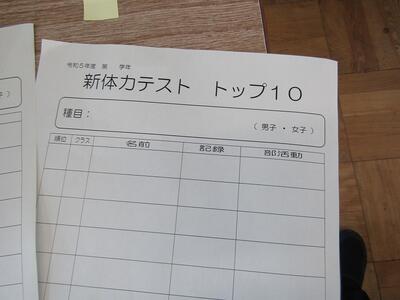 令和5年度　第　　学年
新体力テスト　トップ10
種目：
（ 男子 ・ 女子 ）
順位 クラス 名前 記録 部活動
子 ）